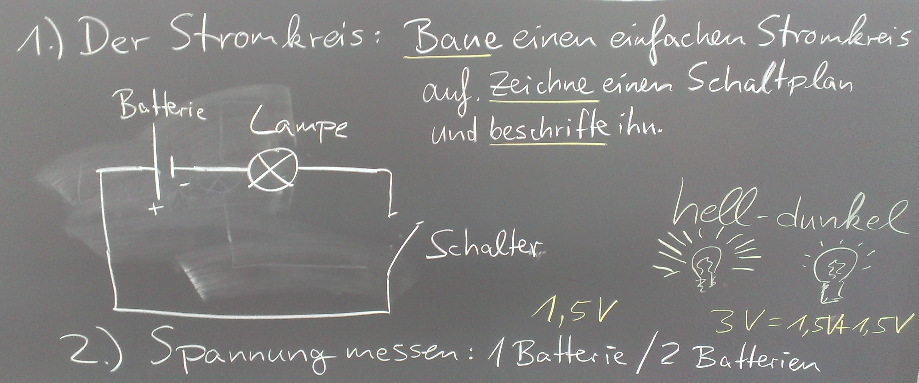 1.) Der Stromkreis: Baue einen einfachen Stromkreis
auf. Zeichne einen Schaltplan
und beschrifte ihn.
Batterie
Lampe
-
+
Schalter
hell - dunkel
1,5V
3V = 1,5V+1,5V
2.) Spannung messen: 1 Batterie / 2 Batterien